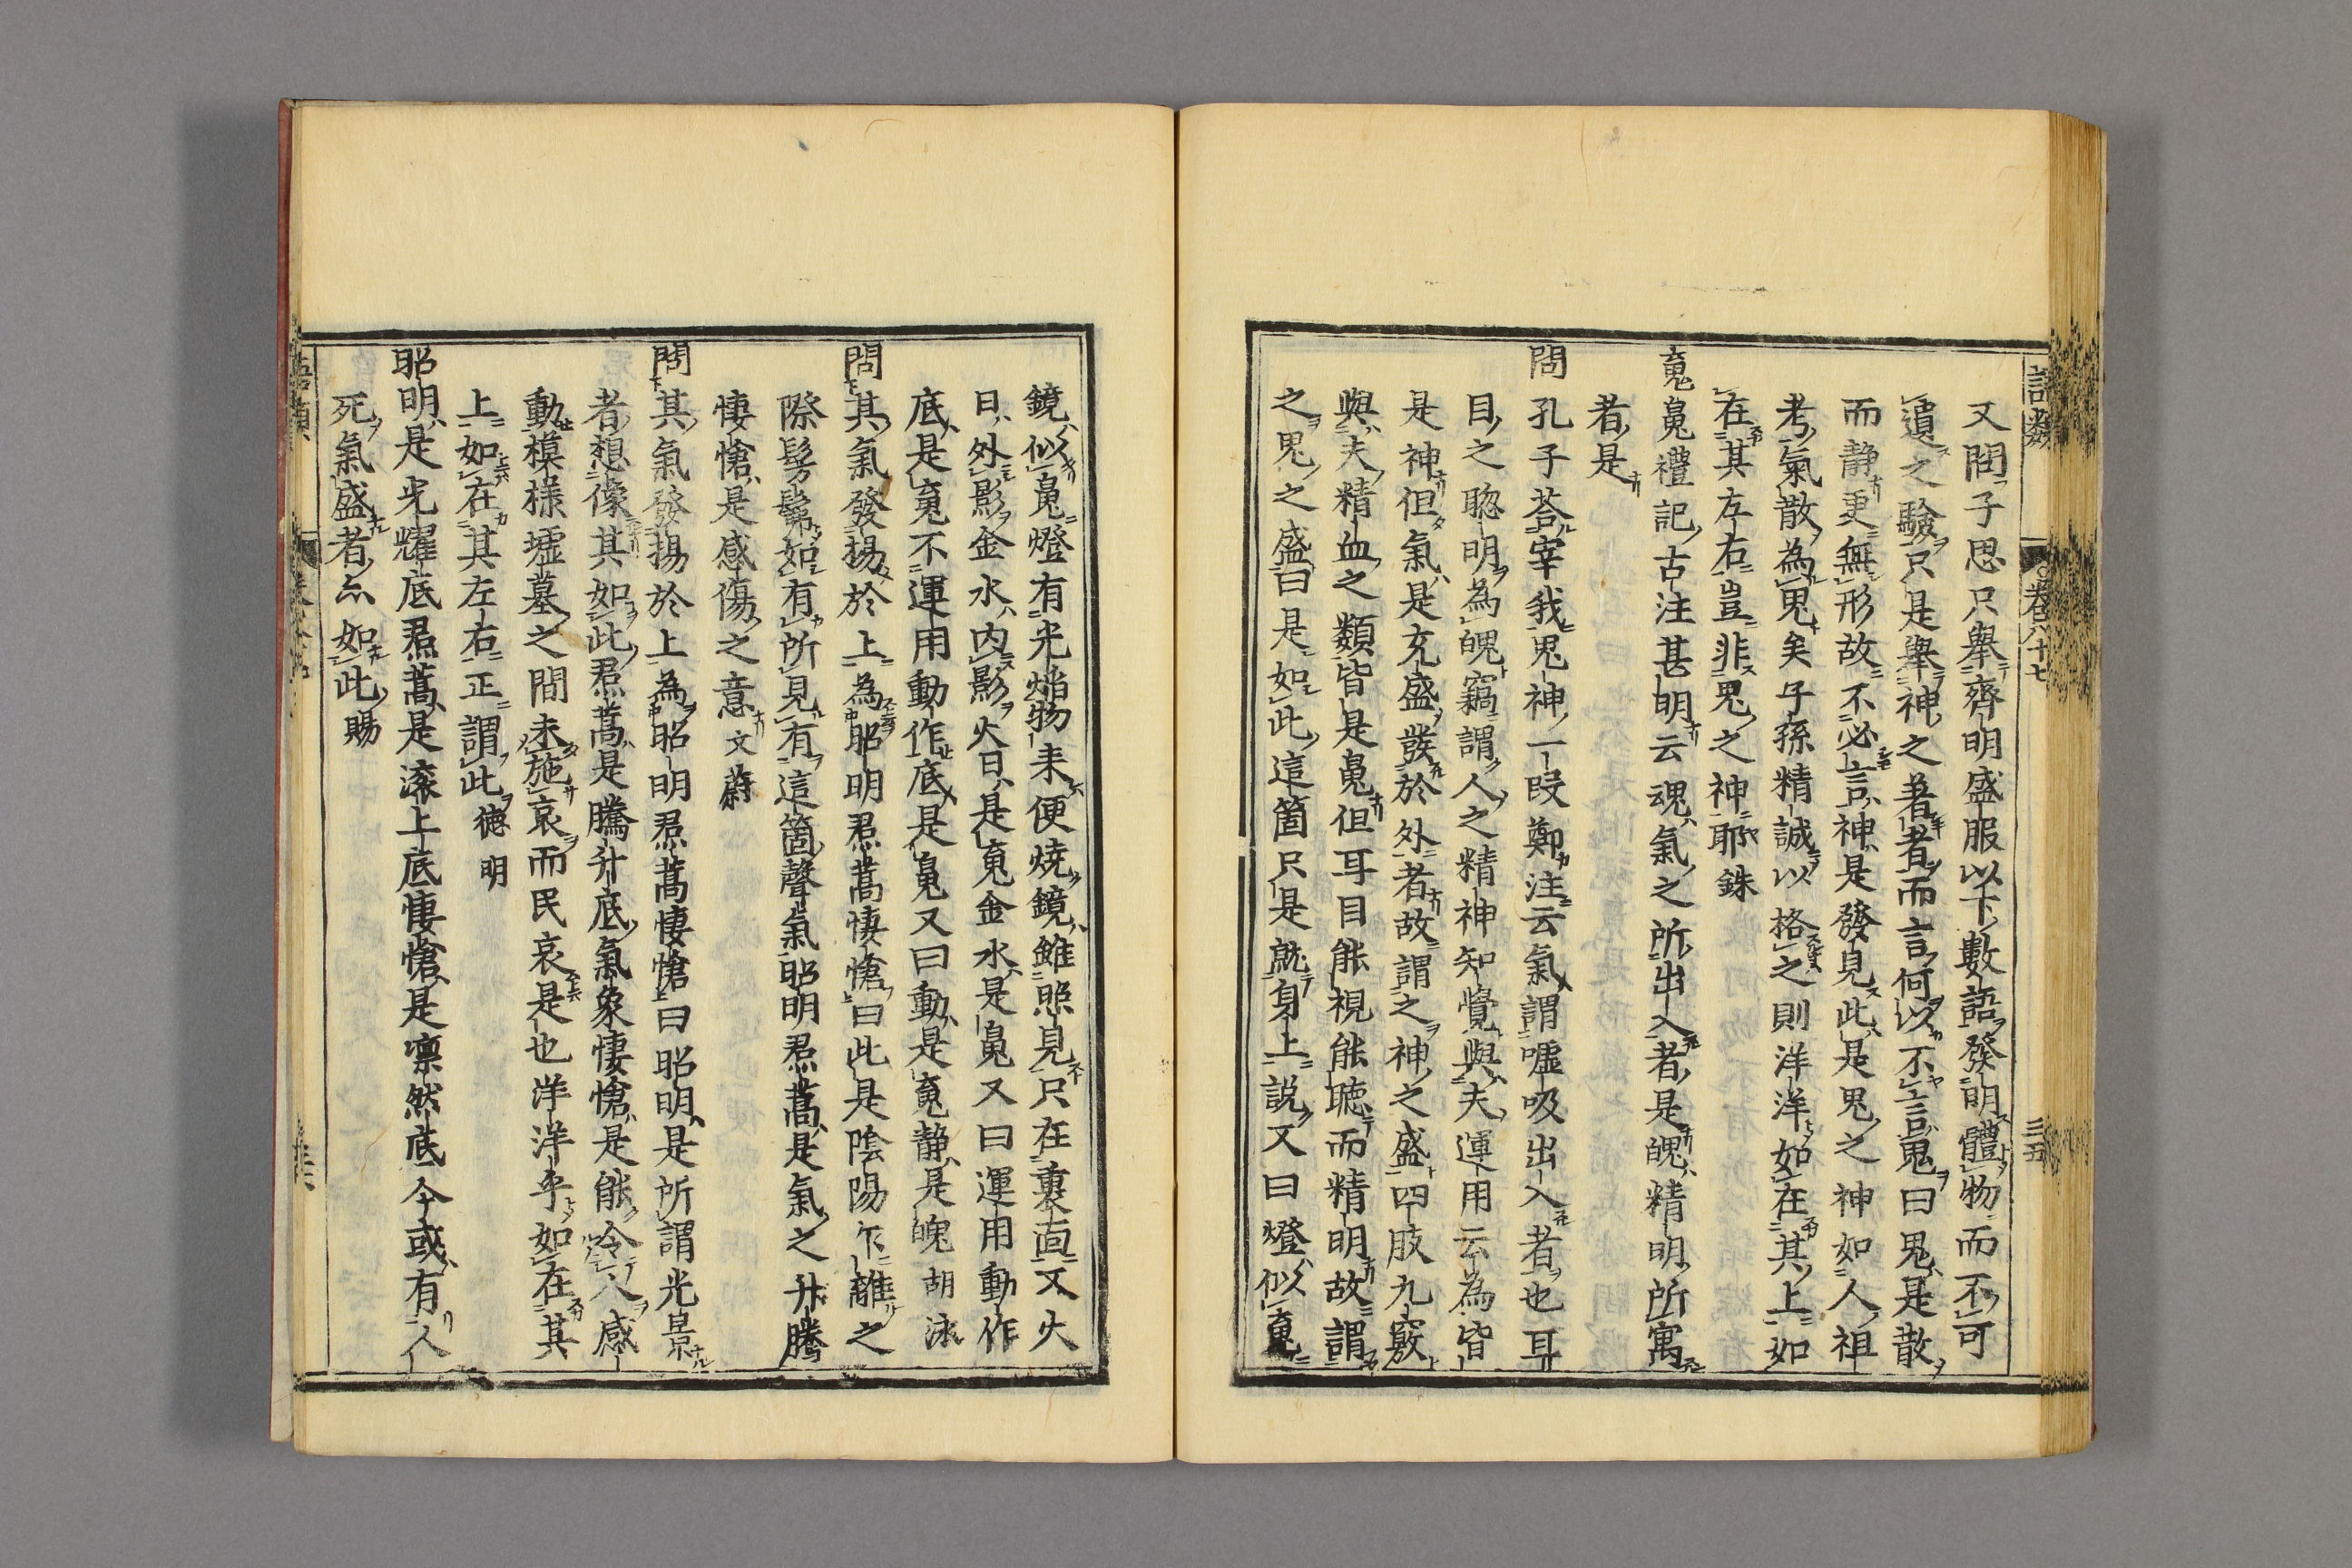 語類 卷八十七 三五
又問子思只舉齊明盛服以下數語發明體物而不可
遺之驗只是舉神之著者而言何以不言鬼曰鬼是散
而静更無形故不必言神是發見此是鬼之神如人祖
考氣散為鬼矣子孫精誠以格之則洋洋如在其上如
在其左右豈非鬼之神耶銖
䰟魄禮記古注甚明云魂氣之所出入者是魄精明所寓
者是
問孔子荅宰我鬼神一段鄭注云氣謂噓吸出入者也耳
目之聰明為魄竊謂人之精神知覺與夫運用云為皆
是神但氣是充盛發於外者故謂之神之盛四肢九竅
與夫精血之類皆是魄但耳目能視能聽而精明故謂
之鬼之盛曰是如此這箇只是就身上說又曰燈似䰟
鏡似魄燈有光焰物来便燒鏡雖照見只在裏面又火
日外影金水内影火日是䰟金水是魄又曰運用動作
底是䰟不運用動作底是魄又曰動是䰟静是魄胡泳
問其氣發揚於上為昭明焄蒿悽愴曰此是陰陽乍離之
際髣髴如有所見有這箇聲氣昭明焄蒿是氣之升騰
悽愴是感傷之意文蔚
問其氣發揚於上為昭明焄蒿悽愴曰昭明是所謂光景
者想像其如此焄蒿是騰升底氣象悽愴是能令人感
動模樣墟墓之間未施哀而民哀是也洋洋乎如在其
上如在其左右正謂此德明
昭明是光耀底焄蒿是滚上底悽愴是凛然底今或有人
死氣盛者亦如此賜